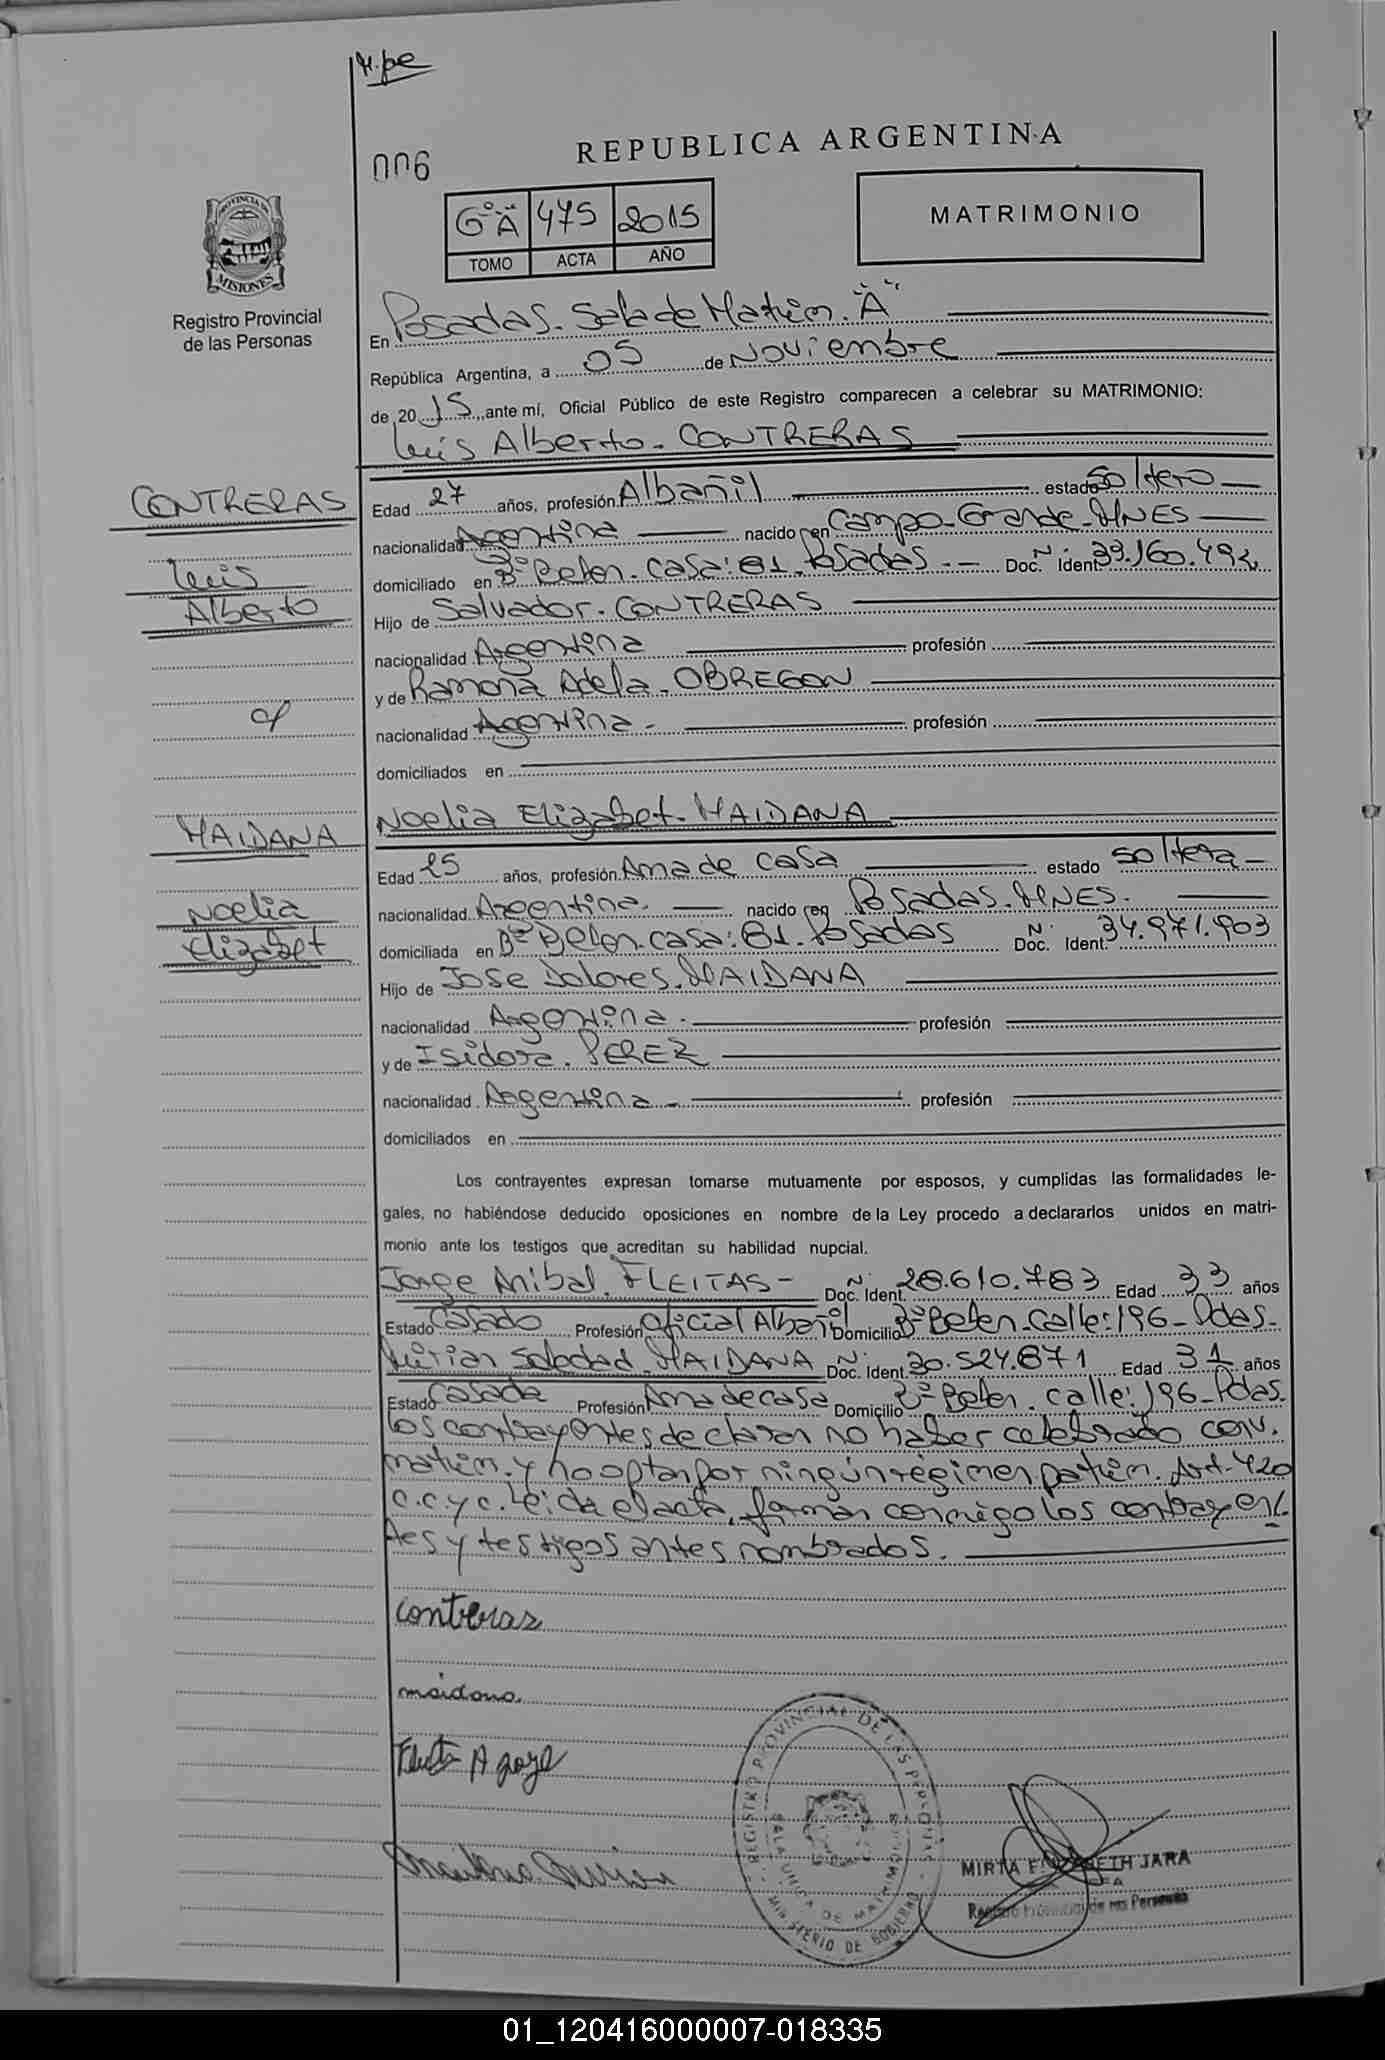 006
REPUBLICA ARGENTINA
PROVINCIA DE
MISIONES
Registro Provincial
de las Personas
6º "A" 475 2015
TOMO ACTA AÑO
MATRIMONIO
En Posadas. Sala de Matrim. "A"
República Argentina, a 05 de Noviembre
de 2015 ante mí, Oficial Público de este Registro comparecen a celebrar su MATRIMONIO:
Luis Alberto. CONTRERAS
CONTRERAS
Luis
Alberto
c/
MAIDANA
Noelia
Elizabet
Edad 27 años, profesión Albañil estado soltero
nacionalidad Argentina nacido en Campo Grande. MNES
domiciliado en Bº Belen. casa: 81. Posadas. Doc. Nº Ident. 33.160.492
Hijo de Salvador. CONTRERAS
nacionalidad Argentina profesión
y de Ramona Adela. OBREGON
nacionalidad Argentina. profesión
domiciliados en
Noelia Elizabet. MAIDANA
Edad 25 años, profesión Ama de casa estado soltera
nacionalidad Argentina. nacido en Posadas. MNES.
domiciliada en Bº Belen. casa: 81. Posadas Doc. Nº Ident. 34.971.903
Hijo de Jose Dolores. MAIDANA
nacionalidad Argentina. profesión
y de Isidora. PEREZ
nacionalidad Argentina. profesión
domiciliados en
Los contrayentes expresan tomarse mutuamente por esposos, y cumplidas las formalidades le-
gales, no habiéndose deducido oposiciones en nombre de la Ley procedo a declararlos unidos en matri-
monio ante los testigos que acreditan su habilidad nupcial.
Jorge Anibal. FLEITAS Doc. Nº Ident. 28.610.783 Edad 33 años
Estado Casado Profesión Oficial Albañil Domicilio Bº Belen. Calle: 196 - Pdas.
Mirian Soledad. MAIDANA Doc. Nº Ident. 30.524.871 Edad 31 años
Estado Casada Profesión Ama de casa Domicilio Bº Belen. calle: 196 - Pdas.
Los contrayentes declaran no haber celebrado conv.
matrim. y no optan por ningún régimen patrim. Art. 420
C.C.y C. Leida el acta, firman conmigo los contrayen-
tes y testigos antes nombrados.
Contreras
maidana
REGISTRO PROVINCIAL DE LAS PERSONAS
SALA UNICA DE MATRIMONIOS
MINISTERIO DE GOBIERNO
MIRTA ELIZABETH JARA
Registro Provincial de las Personas
01_120416000007-018335